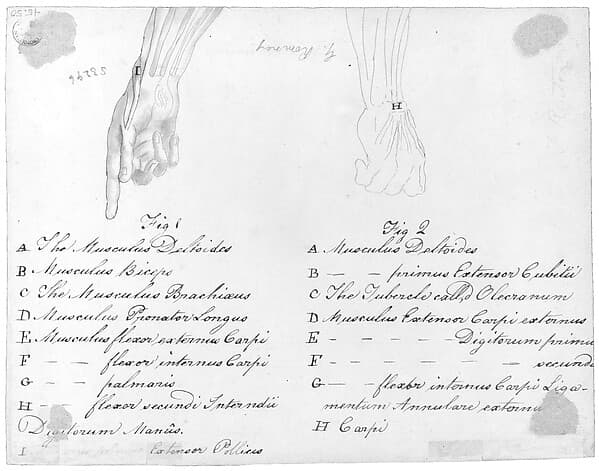 15.50
53296
G. Romney
I
I
I
H
Fig 1
A The Musculus Deltoides
B Musculus Biceps
C The Musculus Brachiæus
D Musculus Pronator Longus
E Musculus flexor externus Carpi
F — — flexor internus Carpi
G — — palmaris
H — — flexor secundi Interndii
Digitorum Manûs.
I Extensor Pollicus
Fig 2
A Musculus Deltoides
B — — primus Extensor Cubitii
C The Tubercle call,d Olecranum
D Musculus Extensor Carpi externus
E — — — — Digitorum primu
F — — — — — secundi
G — — flexor internus Carpi Liga-
mentum Annulare externu
H Carpi